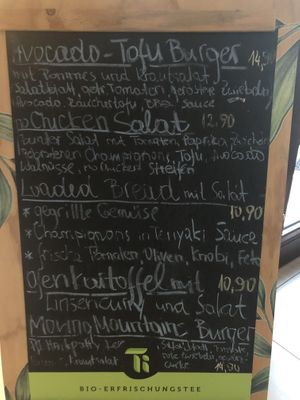 Avocado-Tofu Burger 14,50
mit Pommes und Krautsalat,
Salatblatt, gegr. Tomaten, geröstete Zwiebeln
Avocado, Räuchertofu, Sauce
no Chicken Salat 12.90
bunter Salat mit Tomaten, Paprika,
gebratenen Champignons, Tofu, Avocado
Walnüsse, no chicken Streifen
Loaded Bread mit Salat
* gegrillte Gemüse 10,90
* Champignons in Teriyaki Sauce
* frische Tomaten, Oliven, Knobi, Feta
Ofenkartoffel mit 10,90
Linsencurry und Salat
Moving Mountains Burger
Krautsalat
Gurke 14,50
Ti
BIO-ERFRISCHUNGSTEE